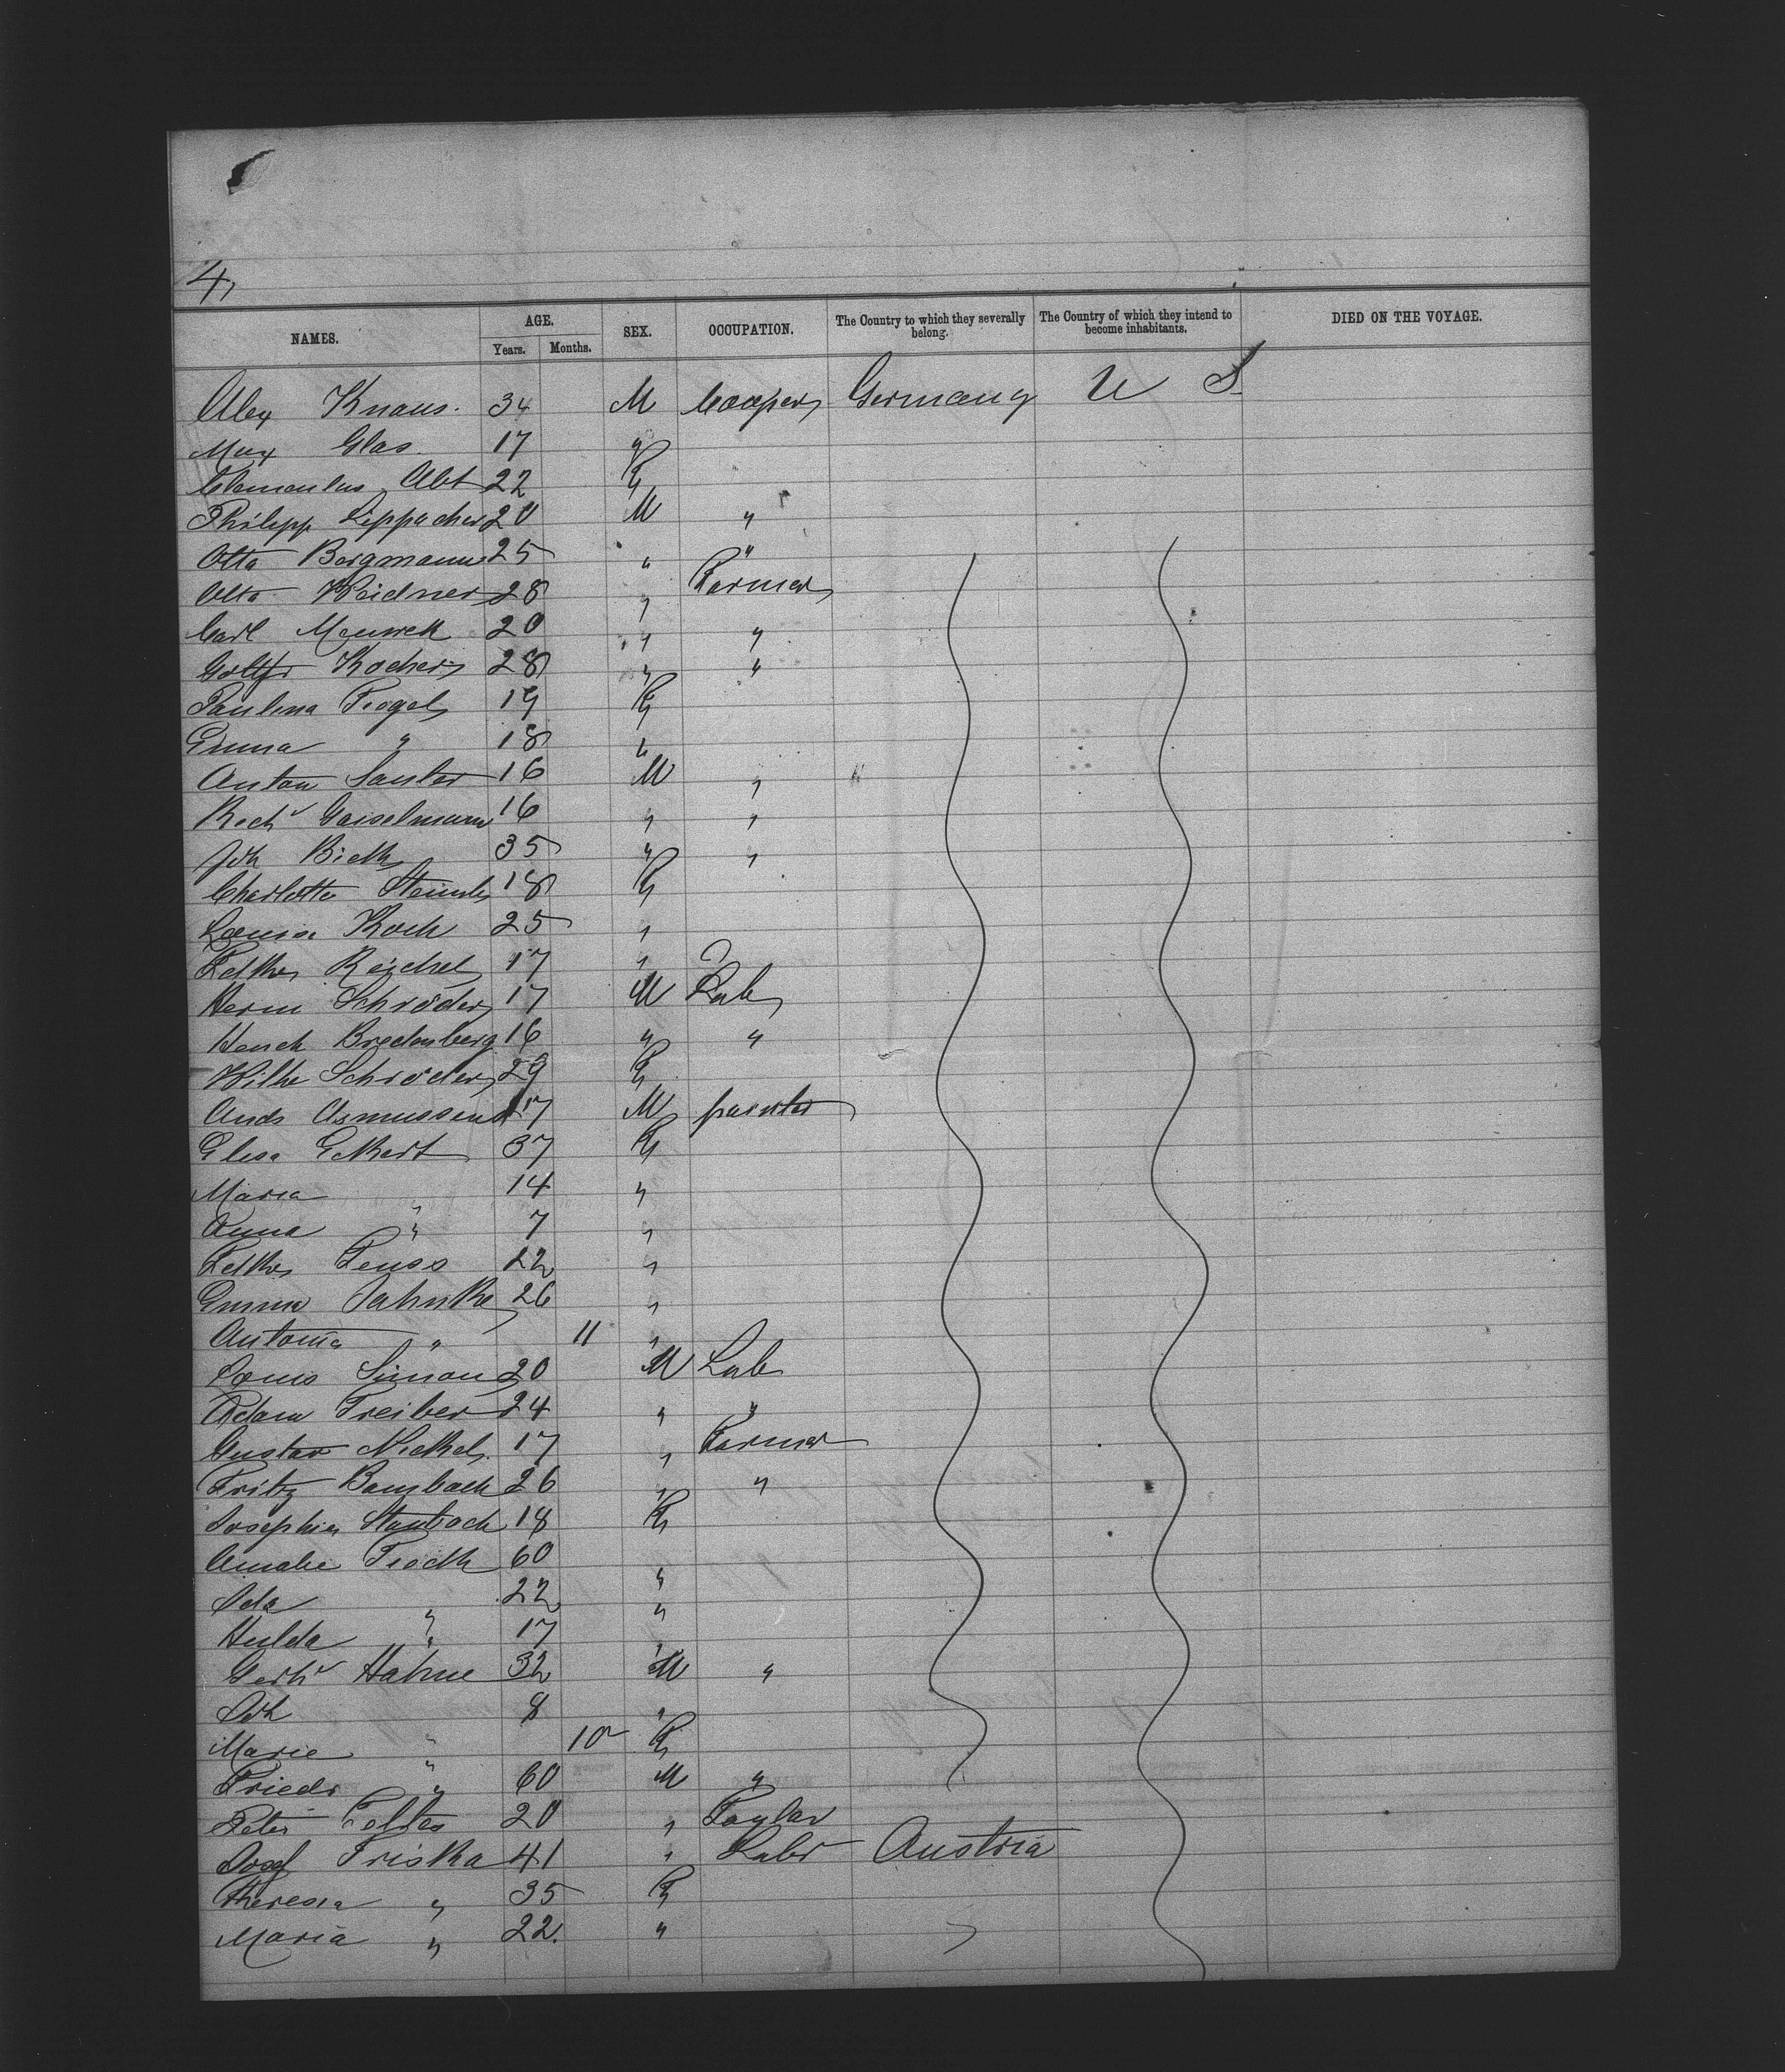 4,
NAMES. AGE. SEX. OCCUPATION. The Country to which they severally belong. The Country of which they intend to become inhabitants. DIED ON THE VOYAGE.
Years. Months.
Alex Knaus. 34 M Cooper Germany U S
Max Glas 17 "
Abt 22 F
Philipp Lippacher 20 M "
Otto Bergmann 25 " "
Otto Weidner 28 " Farmer
Carl 20 " "
Kocher 28 " "
Paulina 19 F
Emma " 18 "
Anton Santer 16 M " "
Rich Gaiselmann 16 " "
Joh Bieth 35 " "
Charlotte 18 F
Louise Koch 25 "
Reichel 17 "
Herm Schröder 17 M Lab
Hench Bredenberg 16 " "
Wilhe Schröder 29 F
Ands Asmussen 17 M painter
Elisa Eckert 37 F
Maria " 14 "
Anna " 7 "
22 "
Emma Jahnke 26 "
Antonia " 11 "
Louis Simon 20 M Lab
Adam Treiber 24 " "
Gustav Nickel 17 " Farmer
Fritz Bambach 26 " "
Josephin Staubach 18 F
Amalie 60 "
Ida " 22 "
Hulda " 17 "
Gerh Hahne 32 M "
Joh " 8 "
Marie " 10 F
Friedr " 60 M "
Peter 20 " Taylor
Josef Triska 41 " Labr Austria
Theresia " 35 F
Maria " 22. "